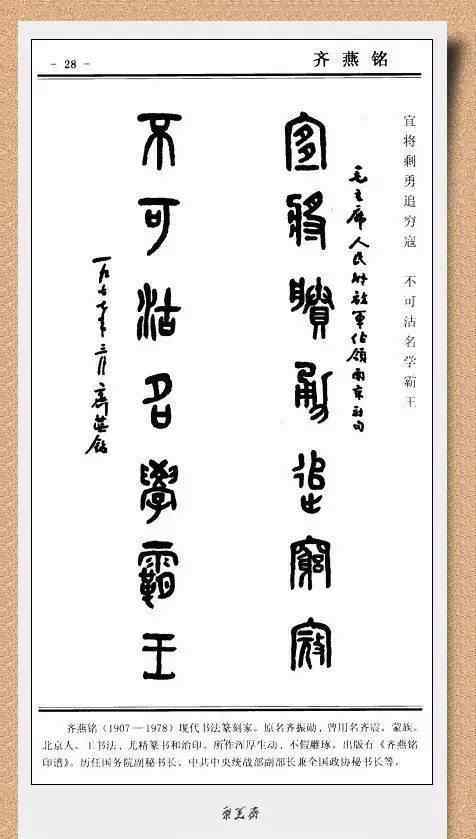 - 28 -
齐燕铭
宜将剩勇追穷寇 不可沽名学霸王
毛主席人民解放军占领南京诗句
宜将賸勇追窮寇
不可沽名學霸王
一九七七年三月 齊燕铭
齐燕铭(1907—1978)现代书法篆刻家。原名齐振勋,曾用名齐震。蒙族。
北京人。工书法,尤精篆书和治印。所作浑厚生动,不假雕琢。出版有《齐燕铭
印谱》。历任国务院副秘书长、中共中央统战部副部长兼全国政协秘书长等。